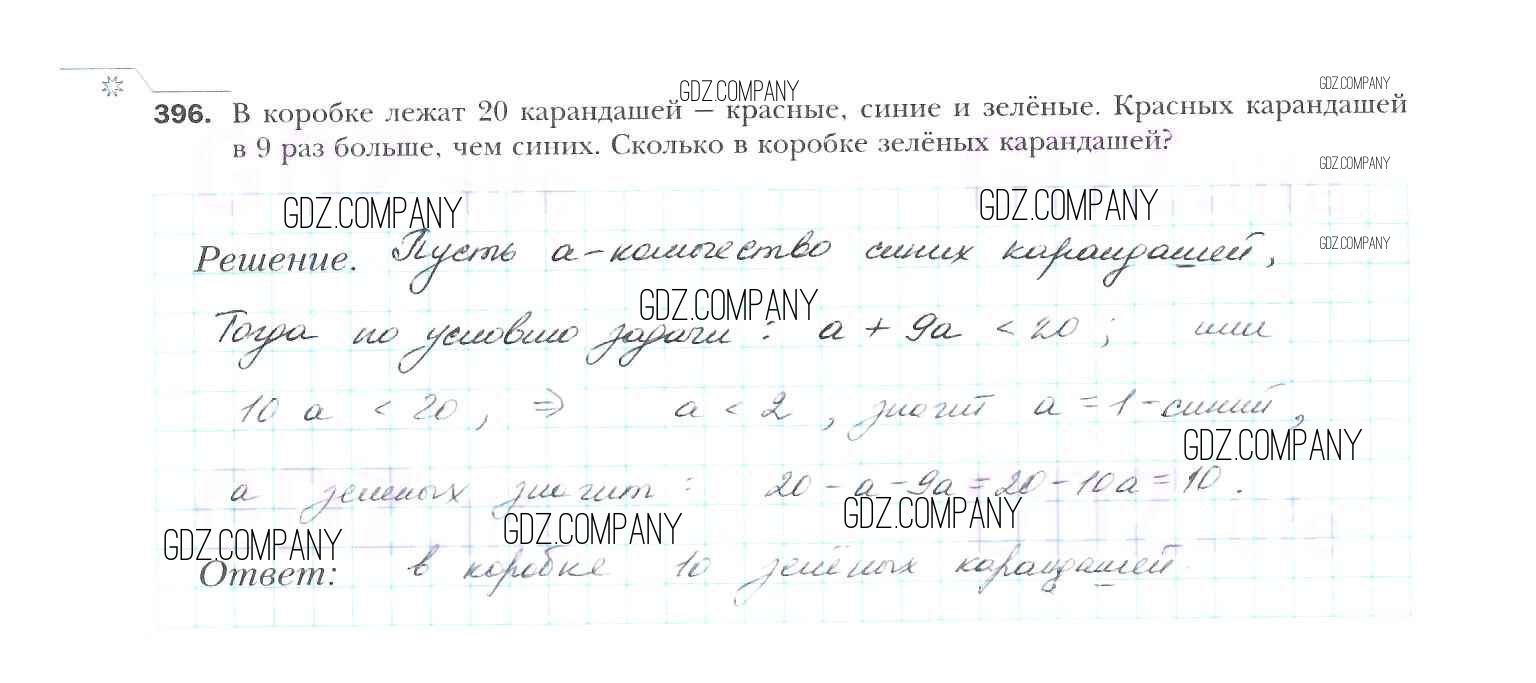 GDZ.COMPANY
GDZ.COMPANY
396. В коробке лежат 20 карандашей – красные, синие и зелёные. Красных карандашей
в 9 раз больше, чем синих. Сколько в коробке зелёных карандашей?
GDZ.COMPANY
GDZ.COMPANY
GDZ.COMPANY
Решение. Пусть а – количество синих карандашей,
GDZ.COMPANY
GDZ.COMPANY
Тогда по условию задачи: а + 9а < 20; или
10 а < 20, ⇒ а < 2, значит а = 1 – синий,
GDZ.COMPANY
а зеленых значит: 20 – а – 9а = 20 – 10а = 10.
GDZ.COMPANY
GDZ.COMPANY
GDZ.COMPANY
Ответ: в коробке 10 зелёных карандашей